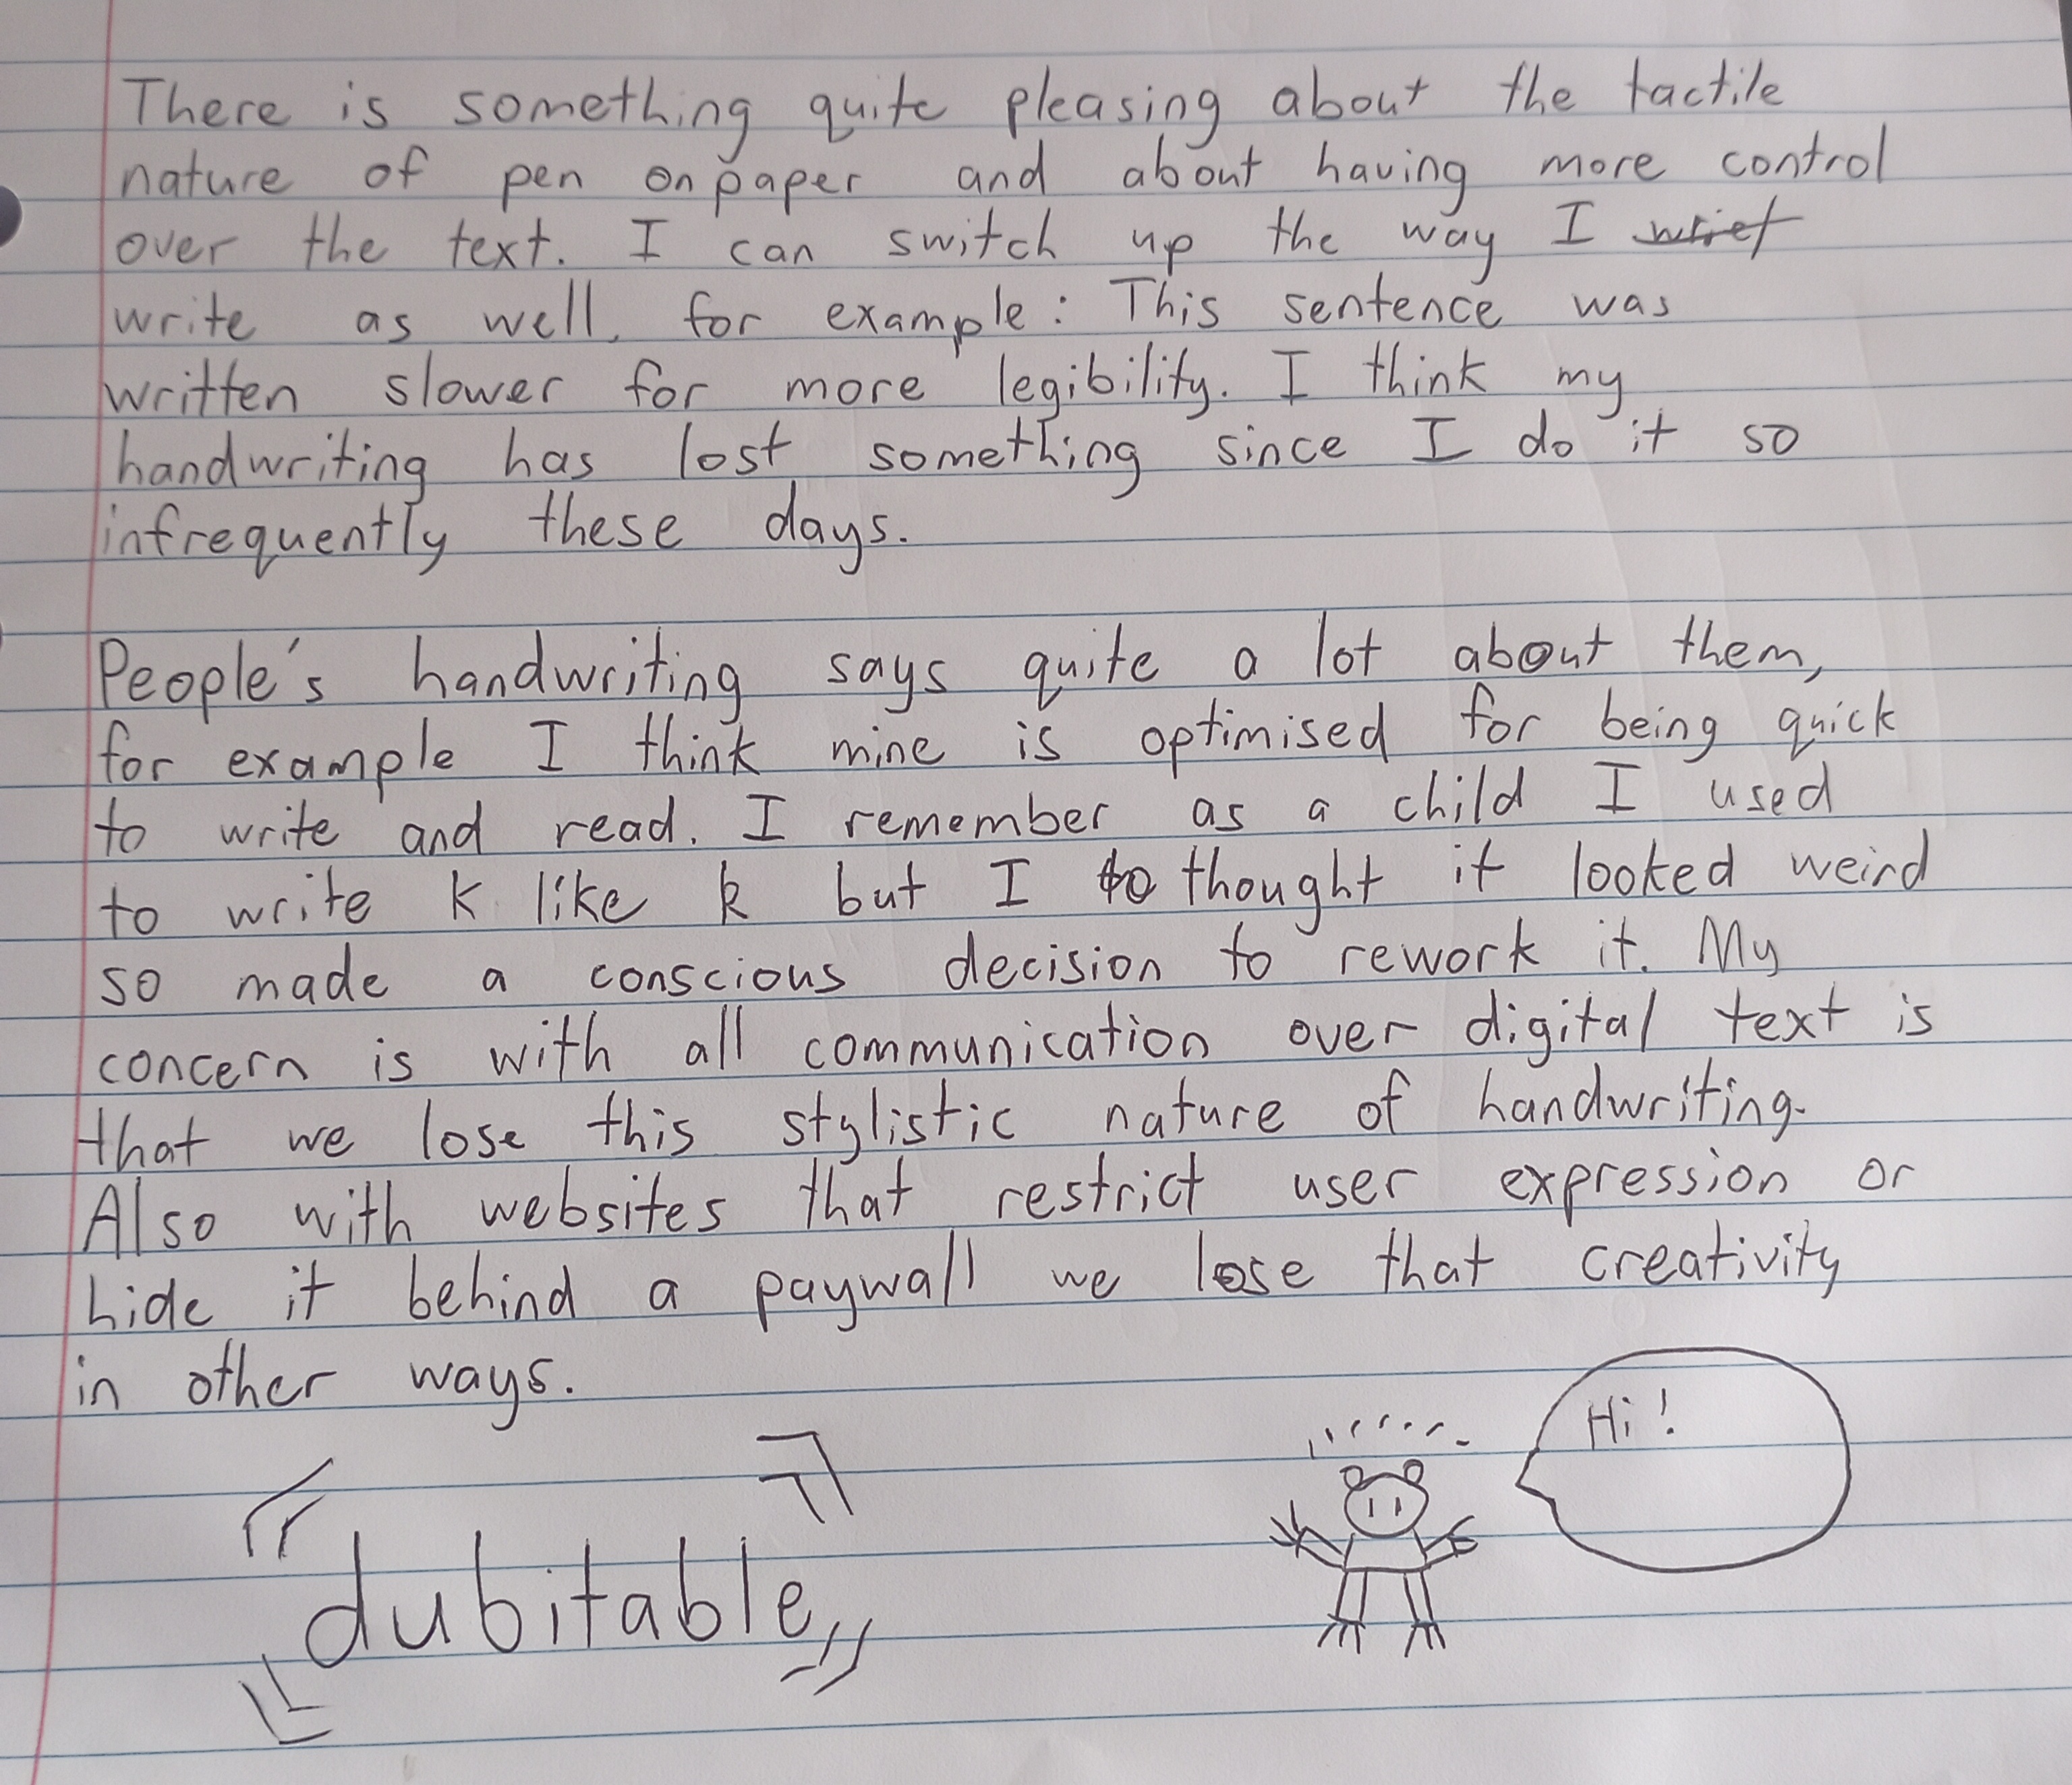 There is something quite pleasing about the tactile
nature of pen on paper and about having more control
over the text. I can switch up the way I wriet
write as well, for example: This sentence was
written slower for more legibility. I think my
handwriting has lost something since I do it so
infrequently these days.
People's handwriting says quite a lot about them,
for example I think mine is optimised for being quick
to write and read. I remember as a child I used
to write k like k but I to thought it looked weird
so made a conscious decision to rework it. My
concern is with all communication over digital text is
that we lose this stylistic nature of handwriting.
Also with websites that restrict user expression or
hide it behind a paywall we lose that creativity
in other ways.
Hi!
dubitable